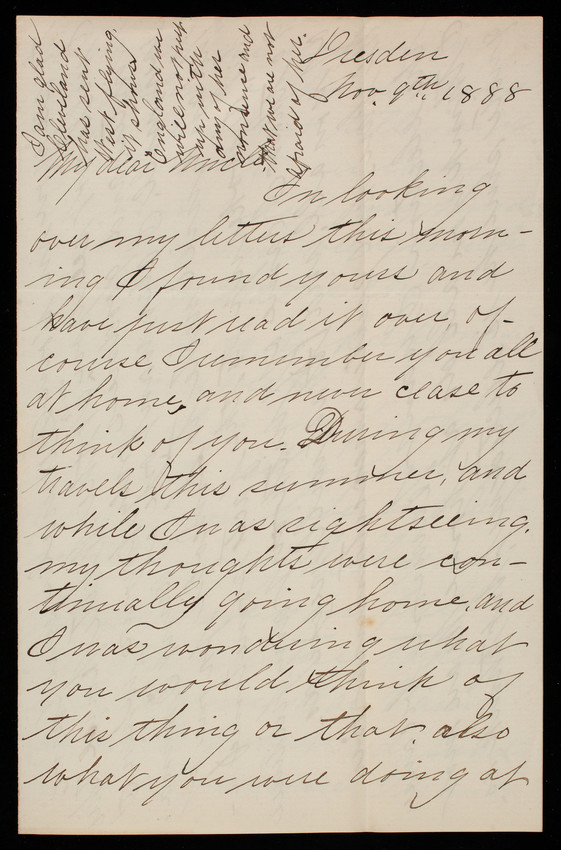 Dresden
Nov. 9th 1888
My dear Uncle
In looking
over my letters this morn-
ing I found yours and
have just read it over, of-
course, I remember you all
at home, and never clase to
think of you. During my
travels, this summer, and
while I was sightseeing,
my thoughts were con-
tinually going home, and
I was wondering what
you would think of
this thing or that, also
what you were doing at
I am glad
Cleveland
has sent
West flying,
it shows
England we
will not put
up with
any of her
nonsense and
that we are not
afraid of her.